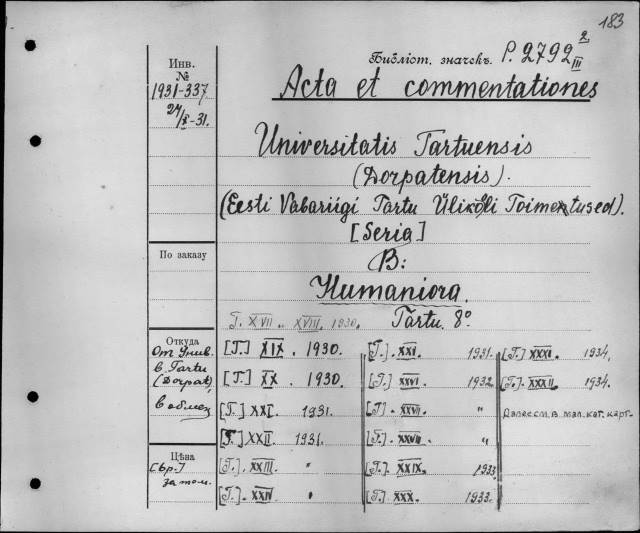 183
Библіот. значекъ. P. 2792 2/III
Инв.
№
1931-337
24/X-31.
Acta et commentationes
Universitatis Tartuensis
(Dorpatensis).
(Eesti Vabariigi Tartu Ülikooli Toimetused).
[Seria]
B:
Humaniora.
Tartu. 8º
T. XVII .. XVIII. 1930.
По заказу
Откуда
От Унив.
в Tartu
(Dorpat),
в обмен
Цѣна
за том.
[T.] XIX. 1930.
[T.] XX. 1930.
[T.] XXI. 1931.
[T.] XXII. 1931.
[T.]. XXIII. "
[T.]. XXIV "
[T.]. XXI. 1931.
[T.] XXVI. 1932
[T] XXVII. "
[T.]. XXVIII. "
[T.]. XXIX. 1933
[T.]. XXX. 1933.
[T.] XXXI. 1934,
[T.]. XXXII. 1934.
Далее см. в мал. кат. карт.